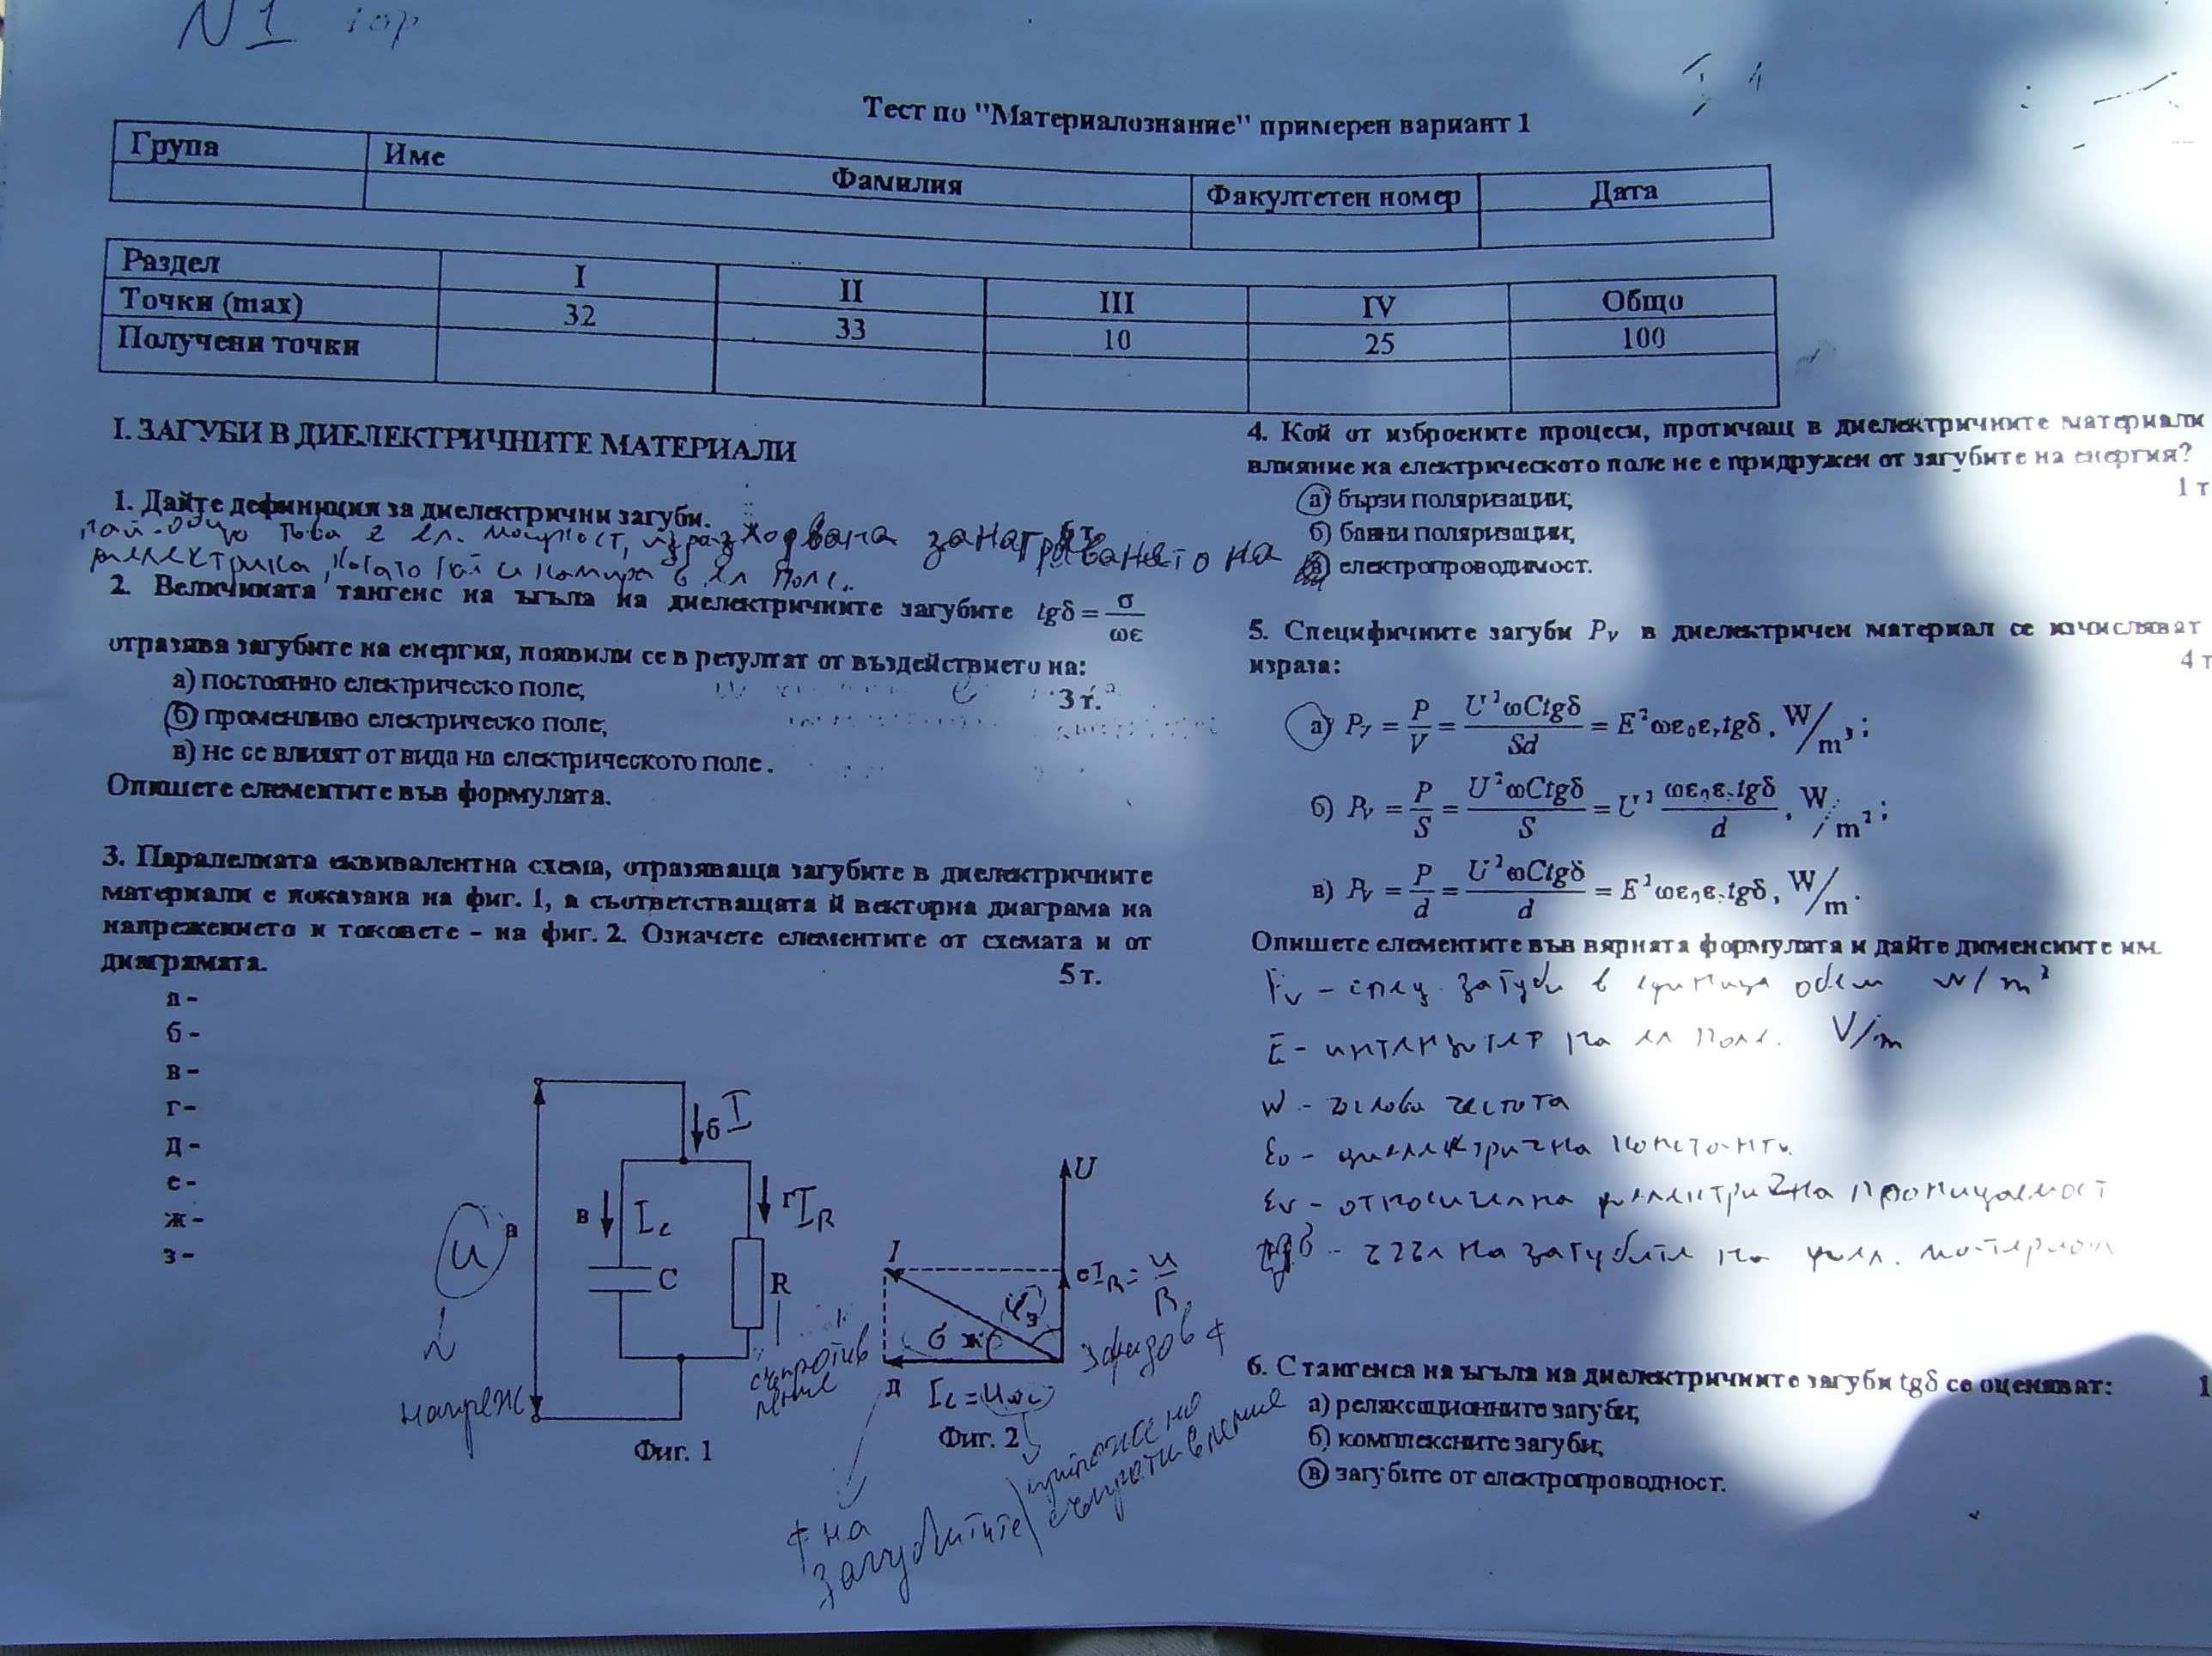 N 1
Тест по "Материалознание" примерен вариант 1
Група Име Фамилия Факултетен номер Дата
Раздел I II III IV Общо
Точки (max) 32 33 10 25 100
Получени точки
I. ЗАГУБИ В ДИЕЛЕКТРИЧНИТЕ МАТЕРИАЛИ
1. Дайте дефиниция за диелектрични загуби.
най-общо това е ел. мощност, изразходвана за нагряването на
диелектрика, когато той се намира в ел поле.
2. Величината тангенс на ъгъла на диелектричните загубите tgδ = σ/ωε
отразява загубите на енергия, появили се в резултат от въздействието на:
а) постоянно електрическо поле; 3 т.
б) променливо електрическо поле;
в) не се влияят от вида на електрическото поле.
Опишете елементите във формулата.
3. Паралелната еквивалентна схема, отразяваща загубите в диелектричните
материали е показана на фиг. 1, а съответстващата ѝ векторна диаграма на
напрежението и токовете – на фиг. 2. Означете елементите от схемата и от
диаграмата. 5 т.
а -
б -
в -
г -
д -
е -
ж -
з -
б I
в I_c
г I_R
а
u
C
R
напреж
съпротивление
Фиг. 1
U
I
е I_R = u/R
φ з
б ж
д
I_c = uωc
з фазов
Фиг. 2
на
загубите
съпротивление
4. Кой от изброените процеси, протичащ в диелектричните материали
влияние на електрическото поле не е придружен от загубите на енергия?
1 т
а) бързи поляризации;
б) бавни поляризации;
в) електропроводимост.
5. Специфичните загуби P_V в диелектричен материал се изчисляват
израза: 4 т
а) P_V = P/V = U²ωCtgδ/Sd = E²ωε₀ε_r tgδ, W/m³;
б) P_V = P/S = U²ωCtgδ/S = U² ωε₀ε_r tgδ/d, W/m²;
в) P_V = P/d = U²ωCtgδ/d = E²ωε₀ε_r tgδ, W/m.
Опишете елементите във вярната формулата и дайте дименсиите им.
P_v – спец. загуби в единица обем W/m³
E – интензитет на ел поле. V/m
W – ъглова честота
ε₀ – диелектрична константа
ε_r – относителна диелектрична проницаемост
tgδ – ъгъл на загубите на диел. материал
6. С тангенса на ъгъла на диелектричните загуби tgδ се оценяват: 1
а) релаксационните загуби;
б) комплексните загуби;
в) загубите от електропроводност.